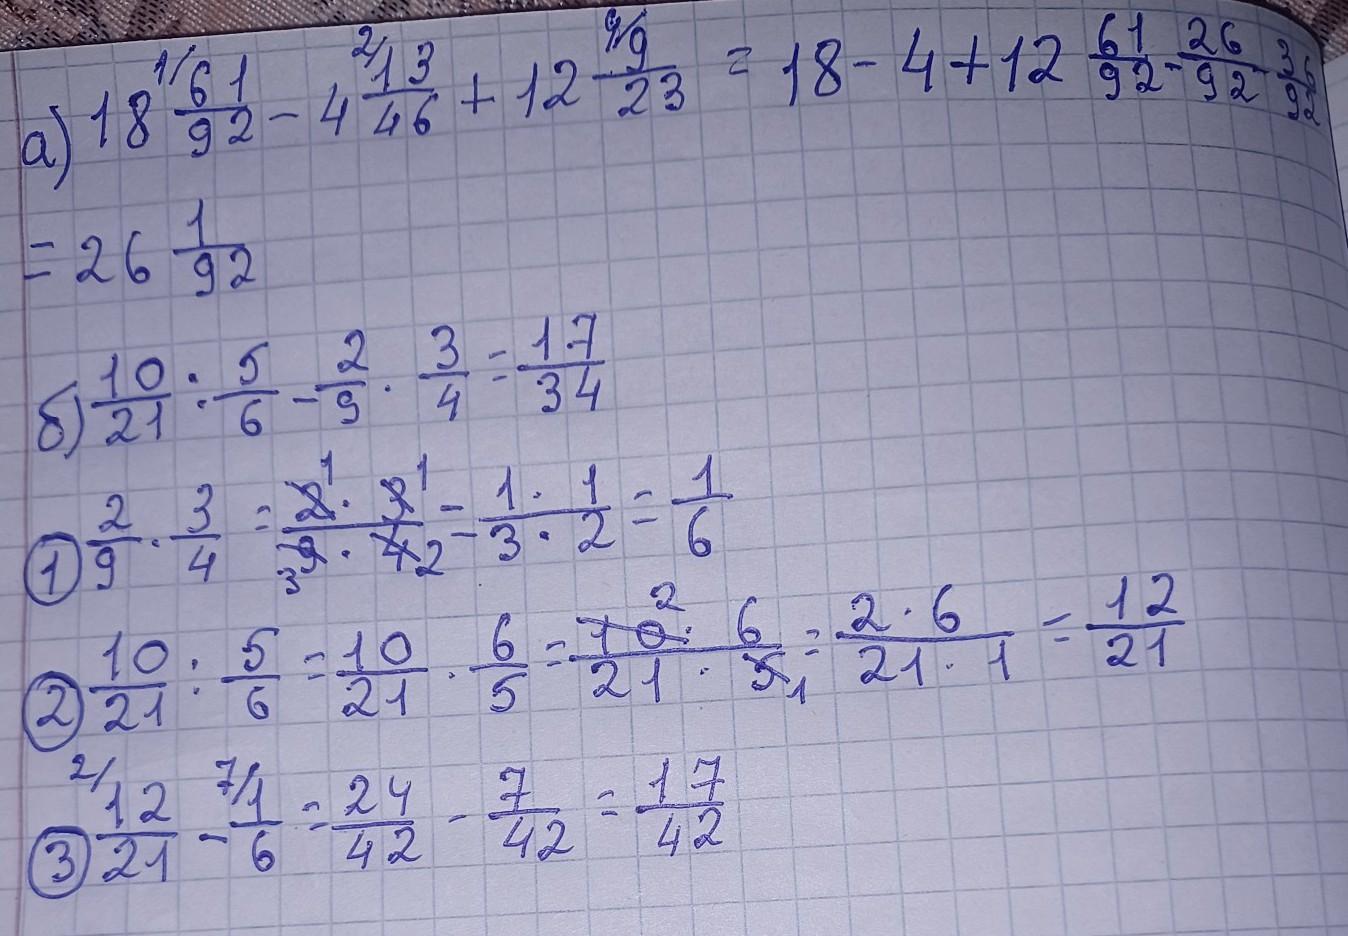 а) 18 1/ 61/92 - 4 2/ 13/46 + 12 4/ 9/23 = 18 - 4 + 12 61/92 - 26/92 - 36/92
= 26 1/92
б) 10/21 : 5/6 - 2/9 · 3/4 = 17/34
① 2/9 · 3/4 = 2 1 · 3 1 / 3 9 · 4 2 = 1 · 1 / 3 · 2 = 1/6
② 10/21 : 5/6 = 10/21 · 6/5 = 10 2 · 6 / 21 · 5 1 = 2 · 6 / 21 · 1 = 12/21
③ 2/ 12/21 - 7/ 1/6 = 24/42 - 7/42 = 17/42